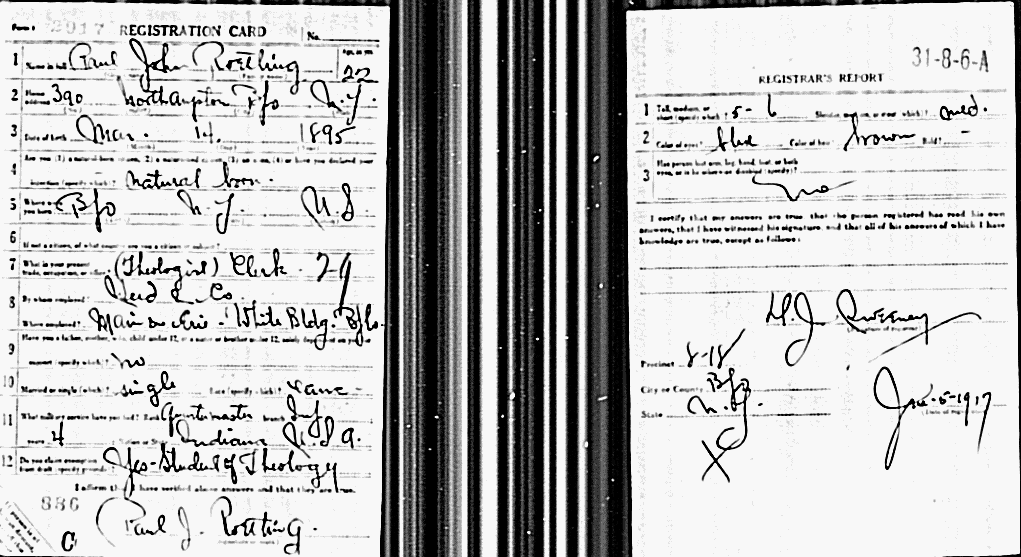 Form 1 2917 REGISTRATION CARD No.
1 Name in full Paul John Roetling Age, in yrs. 22
2 Home address 390 Northampton Bfo N.Y.
3 Date of birth Mar. 14. 1895
4 Are you (1) a natural-born citizen, (2) a naturalized citizen, (3) an alien, (4) or have you declared your
intention (specify which)? natural born.
5 Where were you born? Bfo N.Y. U.S
6 If not a citizen, of what country are you a citizen or subject?
7 What is your present trade, occupation, or office? (Theologist) Clerk
8 By whom employed? & Co.
Where employed? Main Erie - White Bldg. Bflo.
9 Have you a father, mother, wife, child under 12, or a sister or brother under 12, solely dependent on you for
support (specify which)? no
10 Married or single (which)? single Race (specify which)?
11 What military service have you had? Rank Quartermaster branch Inf
years 4 Nation or State Indiana U.S.A.
12 Do you claim exemption from draft (specify grounds)? Yes - Student of Theology
I affirm that I have verified above answers and that they are true.
886
C
Paul J. Roetling.
31-8-6-A
REGISTRAR'S REPORT
1 Tall, medium, or short (specify which)? 5-6 Slender, medium, or stout (which)? med.
2 Color of eyes? blue Color of hair? brown Bald? -
3 Has person lost arm, leg, hand, foot, or both
eyes, or is he otherwise disabled (specify)?
no
I certify that my answers are true, that the person registered has read his own
answers, that I have witnessed his signature, and that all of his answers of which I have
knowledge are true, except as follows:
J. Sweeney
(Signature of registrar)
Precinct 8-18
City or County Bfo
State N.Y.
June-5-1917
(Date of registration)
X